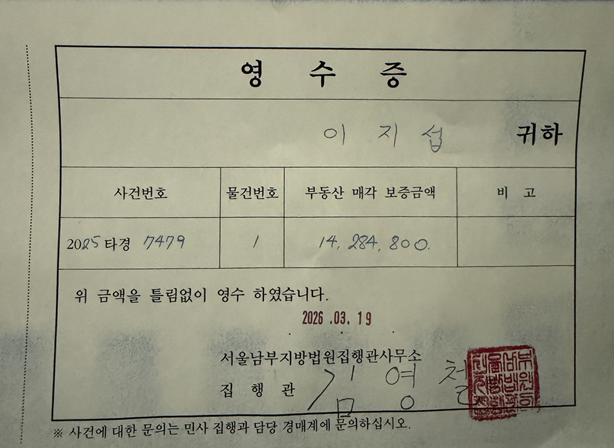 영 수 증
이 지 섭 귀하
사건번호 물건번호 부동산 매각 보증금액 비 고
2025 타경 7479 1 14,284,800.
위 금액을 틀림없이 영수 하였습니다.
2026 .03. 19
서울남부지방법원집행관사무소
집 행 관 김 영 철
※ 사건에 대한 문의는 민사 집행과 담당 경매계에 문의하십시오.